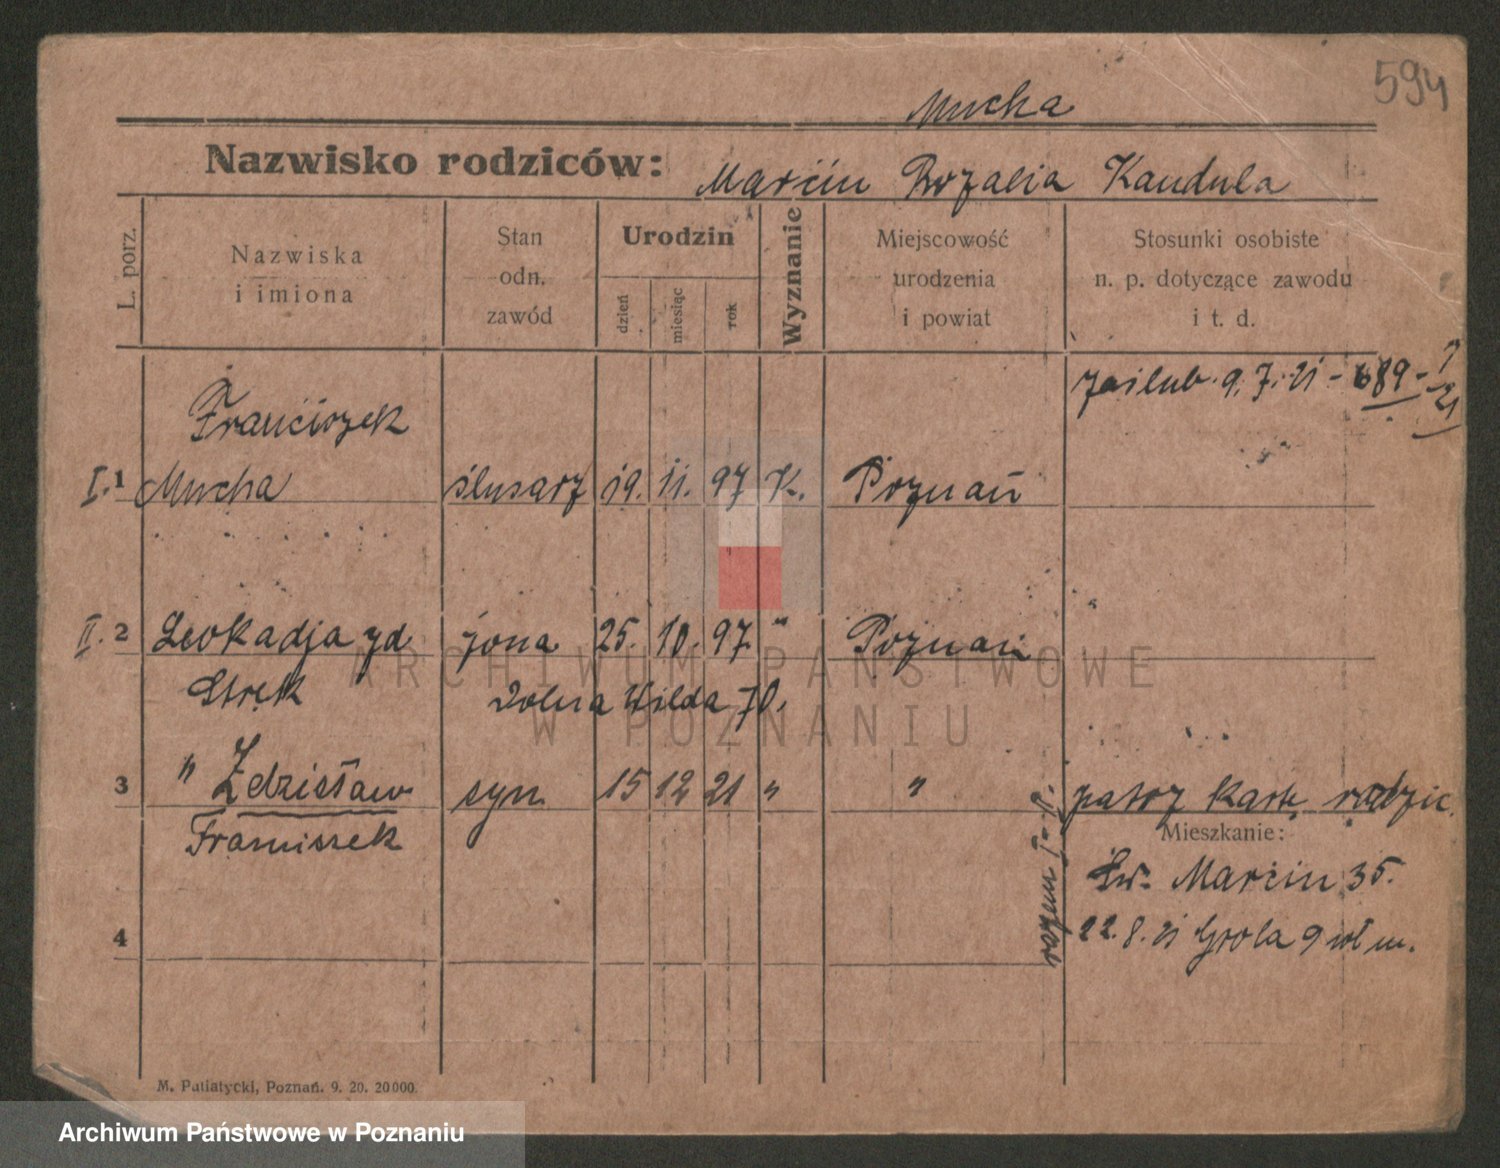 594
Mucha
Nazwisko rodziców: Marcin Rozalia Kandula
L. porz.
Nazwiska i imiona
Stan odn. zawód
Urodzin
dzień
miesiąc
rok
Wyznanie
Miejscowość urodzenia i powiat
Stosunki osobiste n. p. dotyczące zawodu i t. d.
zaślub. 9.7.21 - 689 -
21
Franciszek
I. 1 Mucha ślusarz 19. 11. 97 K. Poznań
II. 2 Leokadja zd żona 25. 10. 97. " Poznań
Stręk Dolna Wilda 70.
3 " Zdzisław syn 15 12 21 " " patrz kartę rodzic.
Franciszek
Mieszkanie:
razem I-II.
Św. Marcin 35.
4
22.8.21 Grobla 9
M. Putiatycki, Poznań. 9. 20. 20000.
ARCHIWUM PAŃSTWOWE
W POZNANIU
Archiwum Państwowe w Poznaniu